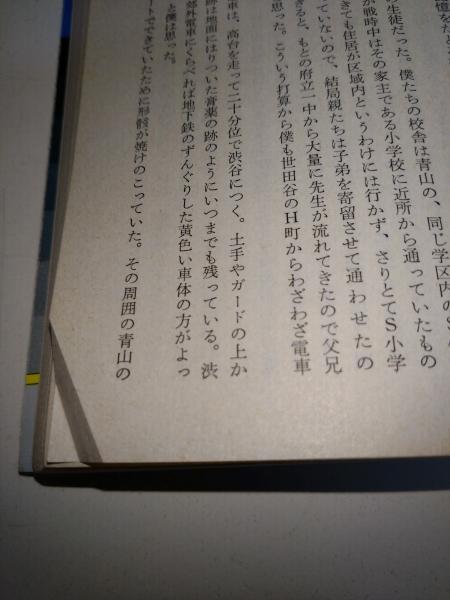 憶をたと
の生徒だった。僕たちの校舎は青山の、同じ学区内のS小
が戦時中はその家主である小学校に近所から通っていたもの
きても住居が区域内というわけには行かず、さりとてS小学
ていないので、結局親たちは子弟を寄留させて通わせたの
ぎると、もとの府立一中から大量に先生が流れてきたので父兄
思った。こういう打算から僕も世田谷のH町からわざわざ電車
車は、高台を走って二十分位で渋谷につく。土手やガードの上か
跡は地面にはりついた膏薬の跡のようにいつまでも残っている。渋
郊外電車にくらべれば地下鉄のずんぐりした黄色い車体の方がよっ
と僕は思った。
ートでできていたために形骸が焼けのこっていた。その周囲の青山の